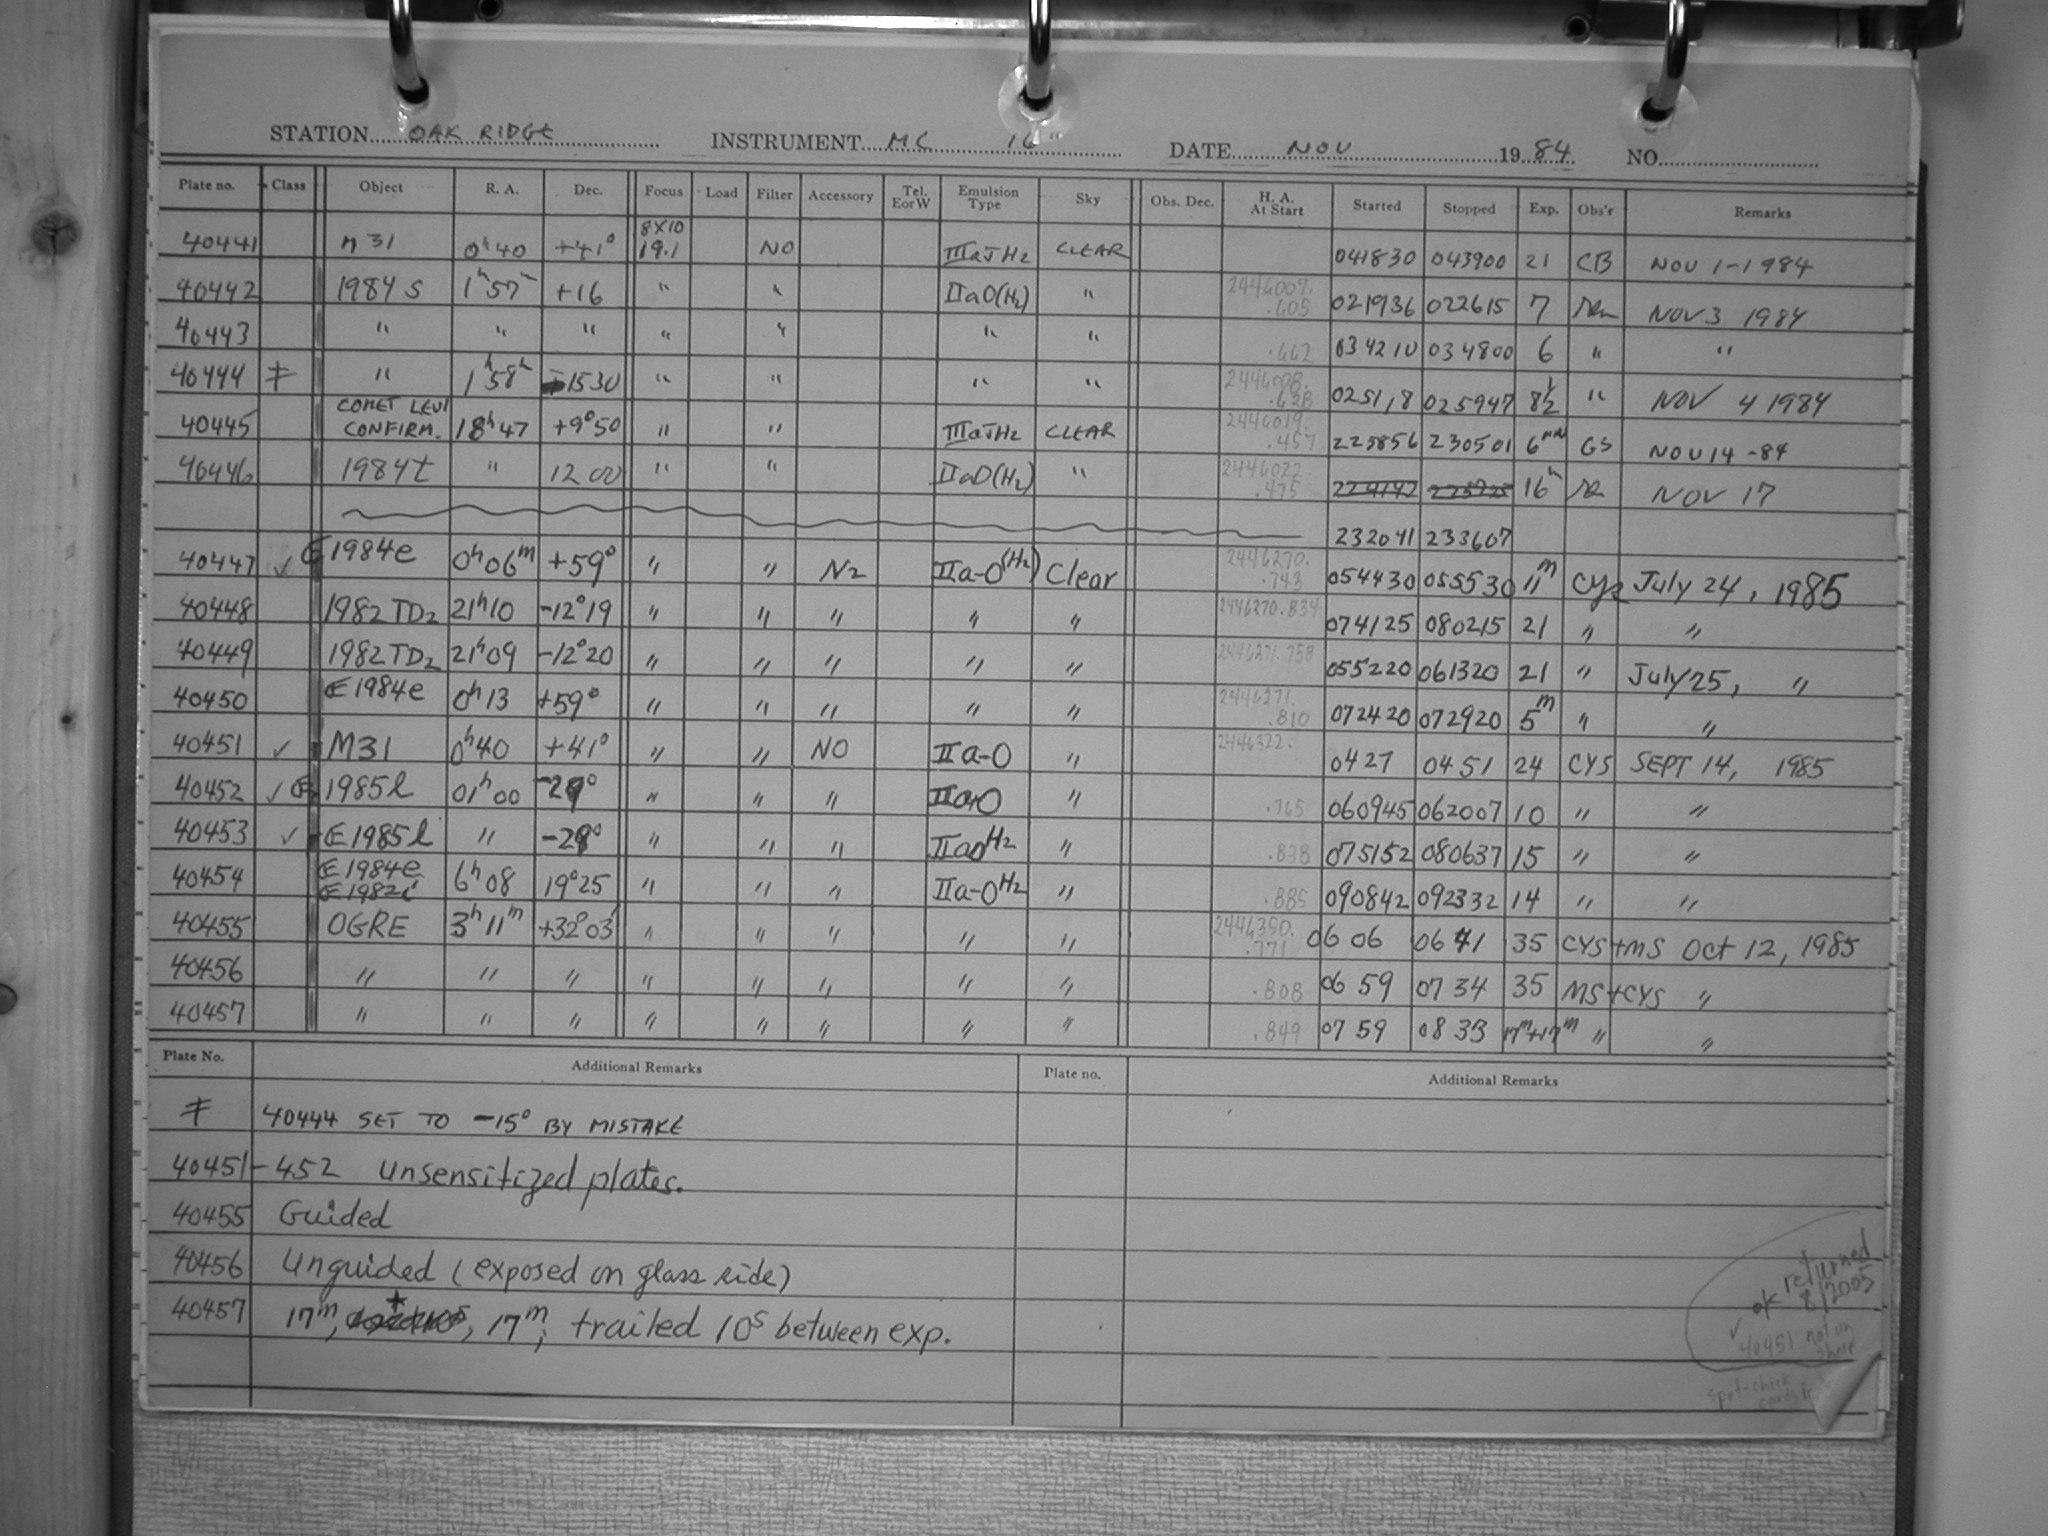 STATION OAK RIDGE INSTRUMENT MC 16" DATE NOV 1984 NO.
Plate no. Class Object R. A. Dec. Focus Load Filter Accessory Tel. E or W Emulsion Type Sky Obs. Dec. H. A. At Start Started Stopped Exp. Obs'r Remarks
40441 M 31 0h40 +41° 8X10 19.1 NO IIIaJH2 CLEAR 041830 043900 21 CB NOV 1-1984
40442 1984 S 1h57m +16 " " IIaO(H2) " 2446007. .605 021936 022615 7 NOV 3 1984
40443 " " " " " " " .662 034210 034800 6 " "
40444 ≠ " 1h58m 1530 " " " " 2446008. 0251,8 025947 8½ " NOV 4 1984
40445 COMET LEVI CONFIRM. 18h47 +9°50 " " IIIaJH2 CLEAR 2446019. .457 225856 230501 6 GS NOV 14-84
40446 1984t " 12 00 " " IIaO(H2) " 2446022. .475 16 NOV 17
232041 233607
40447 ✓ 1984e 0h06m +59° " " N2 IIa-O(H2) Clear 2446270. .743 054430 055530 11m CYS July 24, 1985
40448 1982 TD2 21h10 -12°19 " " " " " 2446270.834 074125 080215 21 " "
40449 1982 TD2 21h09 -12°20 " " " " " 2446271.758 055220 061320 21 " July 25, "
40450 1984e 0h13 +59° " " " " " 2446271. .810 072420 072920 5m " "
40451 ✓ M31 0h40 +41° " " NO IIa-O " 2446322. 0427 0451 24 CYS SEPT 14, 1985
40452 ✓ 1985l 01h00 -29° " " " IIaO " .765 060945 062007 10 " "
40453 ✓ 1985l " -29° " " " IIaOH2 " .838 075152 080637 15 " "
40454 1984e 1982i 6h08 19°25 " " " IIa-OH2 " .885 090842 092332 14 " "
40455 OGRE 3h11m +32°03' " " " " " 2446350. .771 06 06 06 41 35 CYS+MS Oct 12, 1985
40456 " " " " " " " " .808 06 59 07 34 35 MS+CYS "
40457 " " " " " " " " .849 07 59 08 33 17m+17m " "
Plate No. Additional Remarks Plate no. Additional Remarks
≠ 40444 SET TO -15° BY MISTAKE
40451-452 unsensitized plates.
40455 Guided
40456 Unguided (exposed on glass side)
40457 17m, +, 17m, trailed 10s between exp.
ok returned
8/2005
✓ 40451 not on
shelf
spot-check
cards